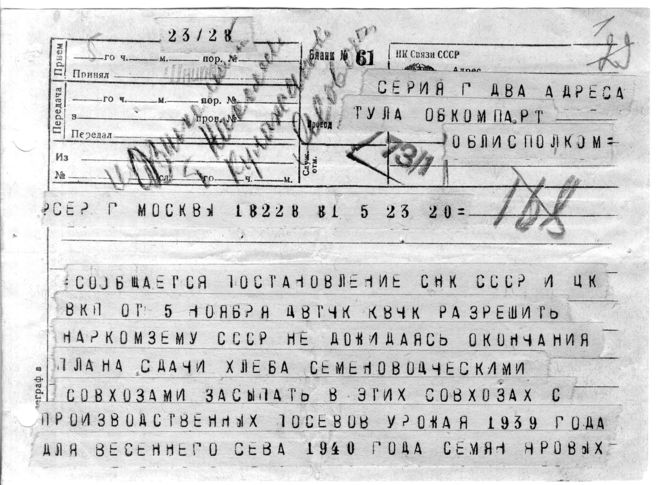 23/28
Прием
5 го ч. м. пор. №
Бланк № 61
НК Связи СССР
Принял
Адрес
СЕРИЯ Г ДВА АДРЕСА
Передача
го ч. м. пор. №
ТУЛА ОБКОМПАРТ
в пров. №
Провод
ОБЛИСПОЛКОМ=
Передал
73/1
Из
Служ. отм.
№ сл. го ч. м.
168
РСЕР Г МОСКВЫ 18228 81 5 23 20=
=СООБЩАЕТСЯ ПОСТАНОВЛЕНИЕ СНК СССР И ЦК
ВКП ОТ 5 НОЯБРЯ ДВТЧК КВЧК РАЗРЕШИТЬ
НАРКОМЗЕМУ СССР НЕ ДОЖИДАЯСЬ ОКОНЧАНИЯ
ПЛАНА СДАЧИ ХЛЕБА СЕМЕНОВОДЧЕСКИМИ
СОВХОЗАМИ ЗАСЫПАТЬ В ЭТИХ СОВХОЗАХ С
ПРОИЗВОДСТВЕННЫХ ПОСЕВОВ УРОЖАЯ 1939 ГОДА
ДЛЯ ВЕСЕННЕГО СЕВА 1940 ГОДА СЕМЯН ЯРОВЫХ